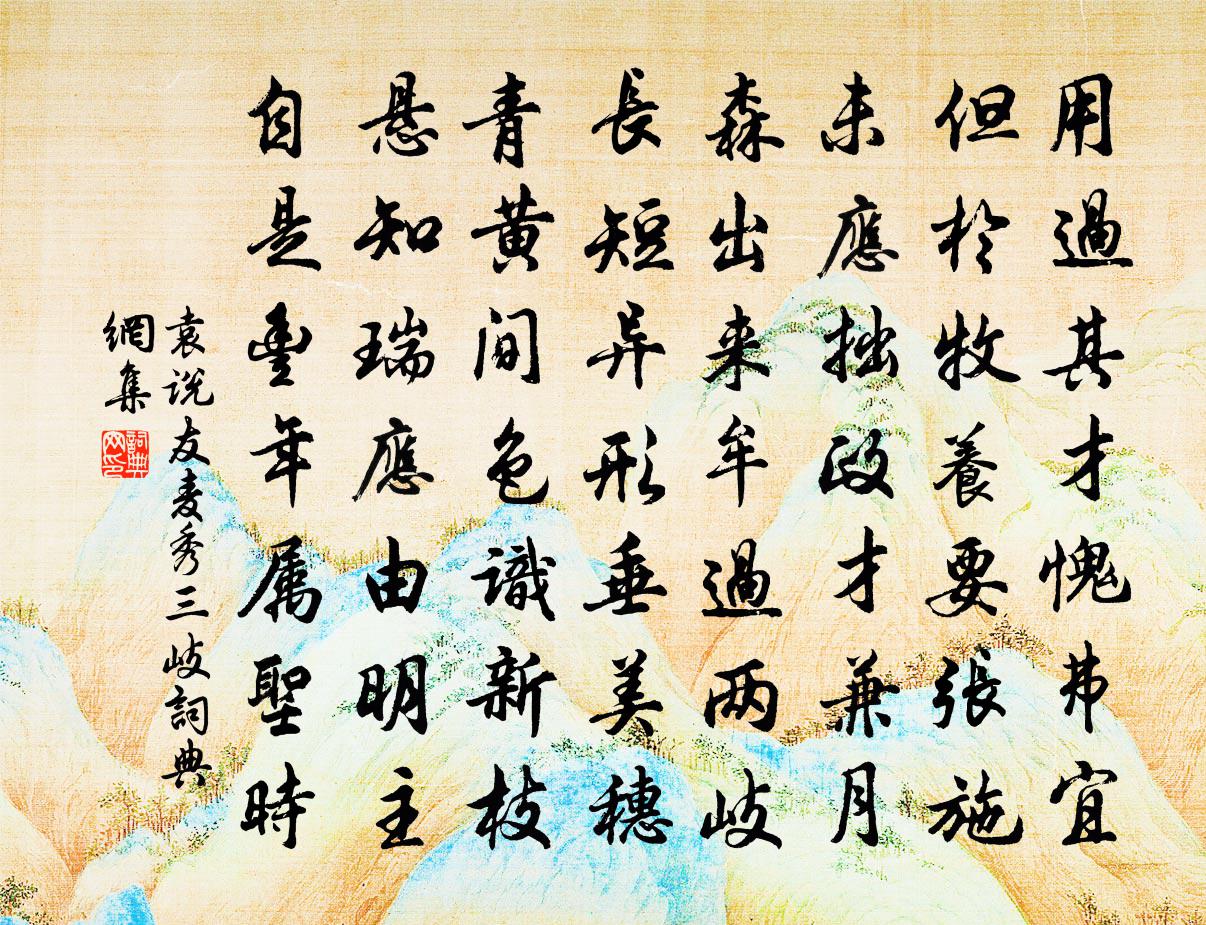 用過其才愧弗宜
但於牧養要張施
未應拙政才兼月
森出来牟過两岐
長短异形垂美穗
青黄间色識新枝
悬知瑞應由明主
自是豐年属聖時
袁说友麦秀三岐詞典
網集
詞典网印